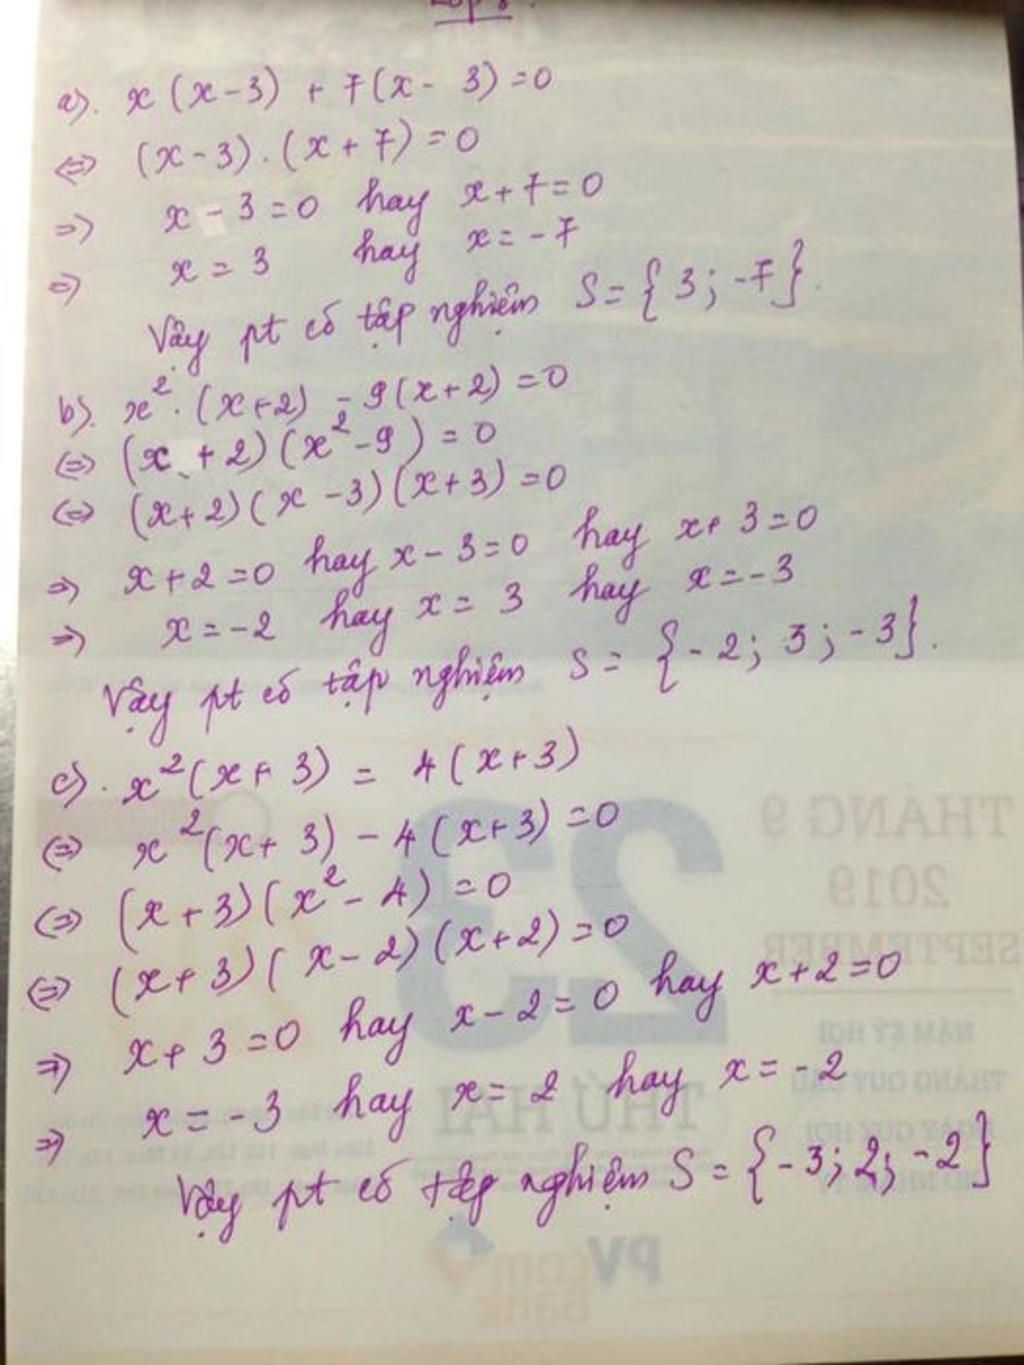 Lớp 8.
a). x (x-3) + 7(x- 3) = 0
⇔ (x-3).(x+7) = 0
⇒ x-3=0 hay x+7=0
⇒ x = 3 hay x = -7
Vậy pt có tập nghiệm S = {3; -7}.
b). x².(x+2) - 9(x+2) = 0
⇔ (x+2)(x²-9) = 0
⇔ (x+2)(x-3)(x+3) = 0
⇒ x+2=0 hay x-3=0 hay x+3=0
⇒ x=-2 hay x=3 hay x=-3
Vậy pt có tập nghiệm S = {-2; 3; -3}.
c). x²(x+3) = 4(x+3)
⇔ x²(x+3) - 4(x+3) = 0
⇔ (x+3)(x²-4) = 0
⇔ (x+3)(x-2)(x+2) = 0
⇒ x+3=0 hay x-2=0 hay x+2=0
⇒ x=-3 hay x=2 hay x=-2
Vậy pt có tập nghiệm S = {-3; 2; -2}
THÁNG 9
23
2019
SEPTEMBER
NĂM KỶ HỢI
THỨ HAI
PV
com
Bank